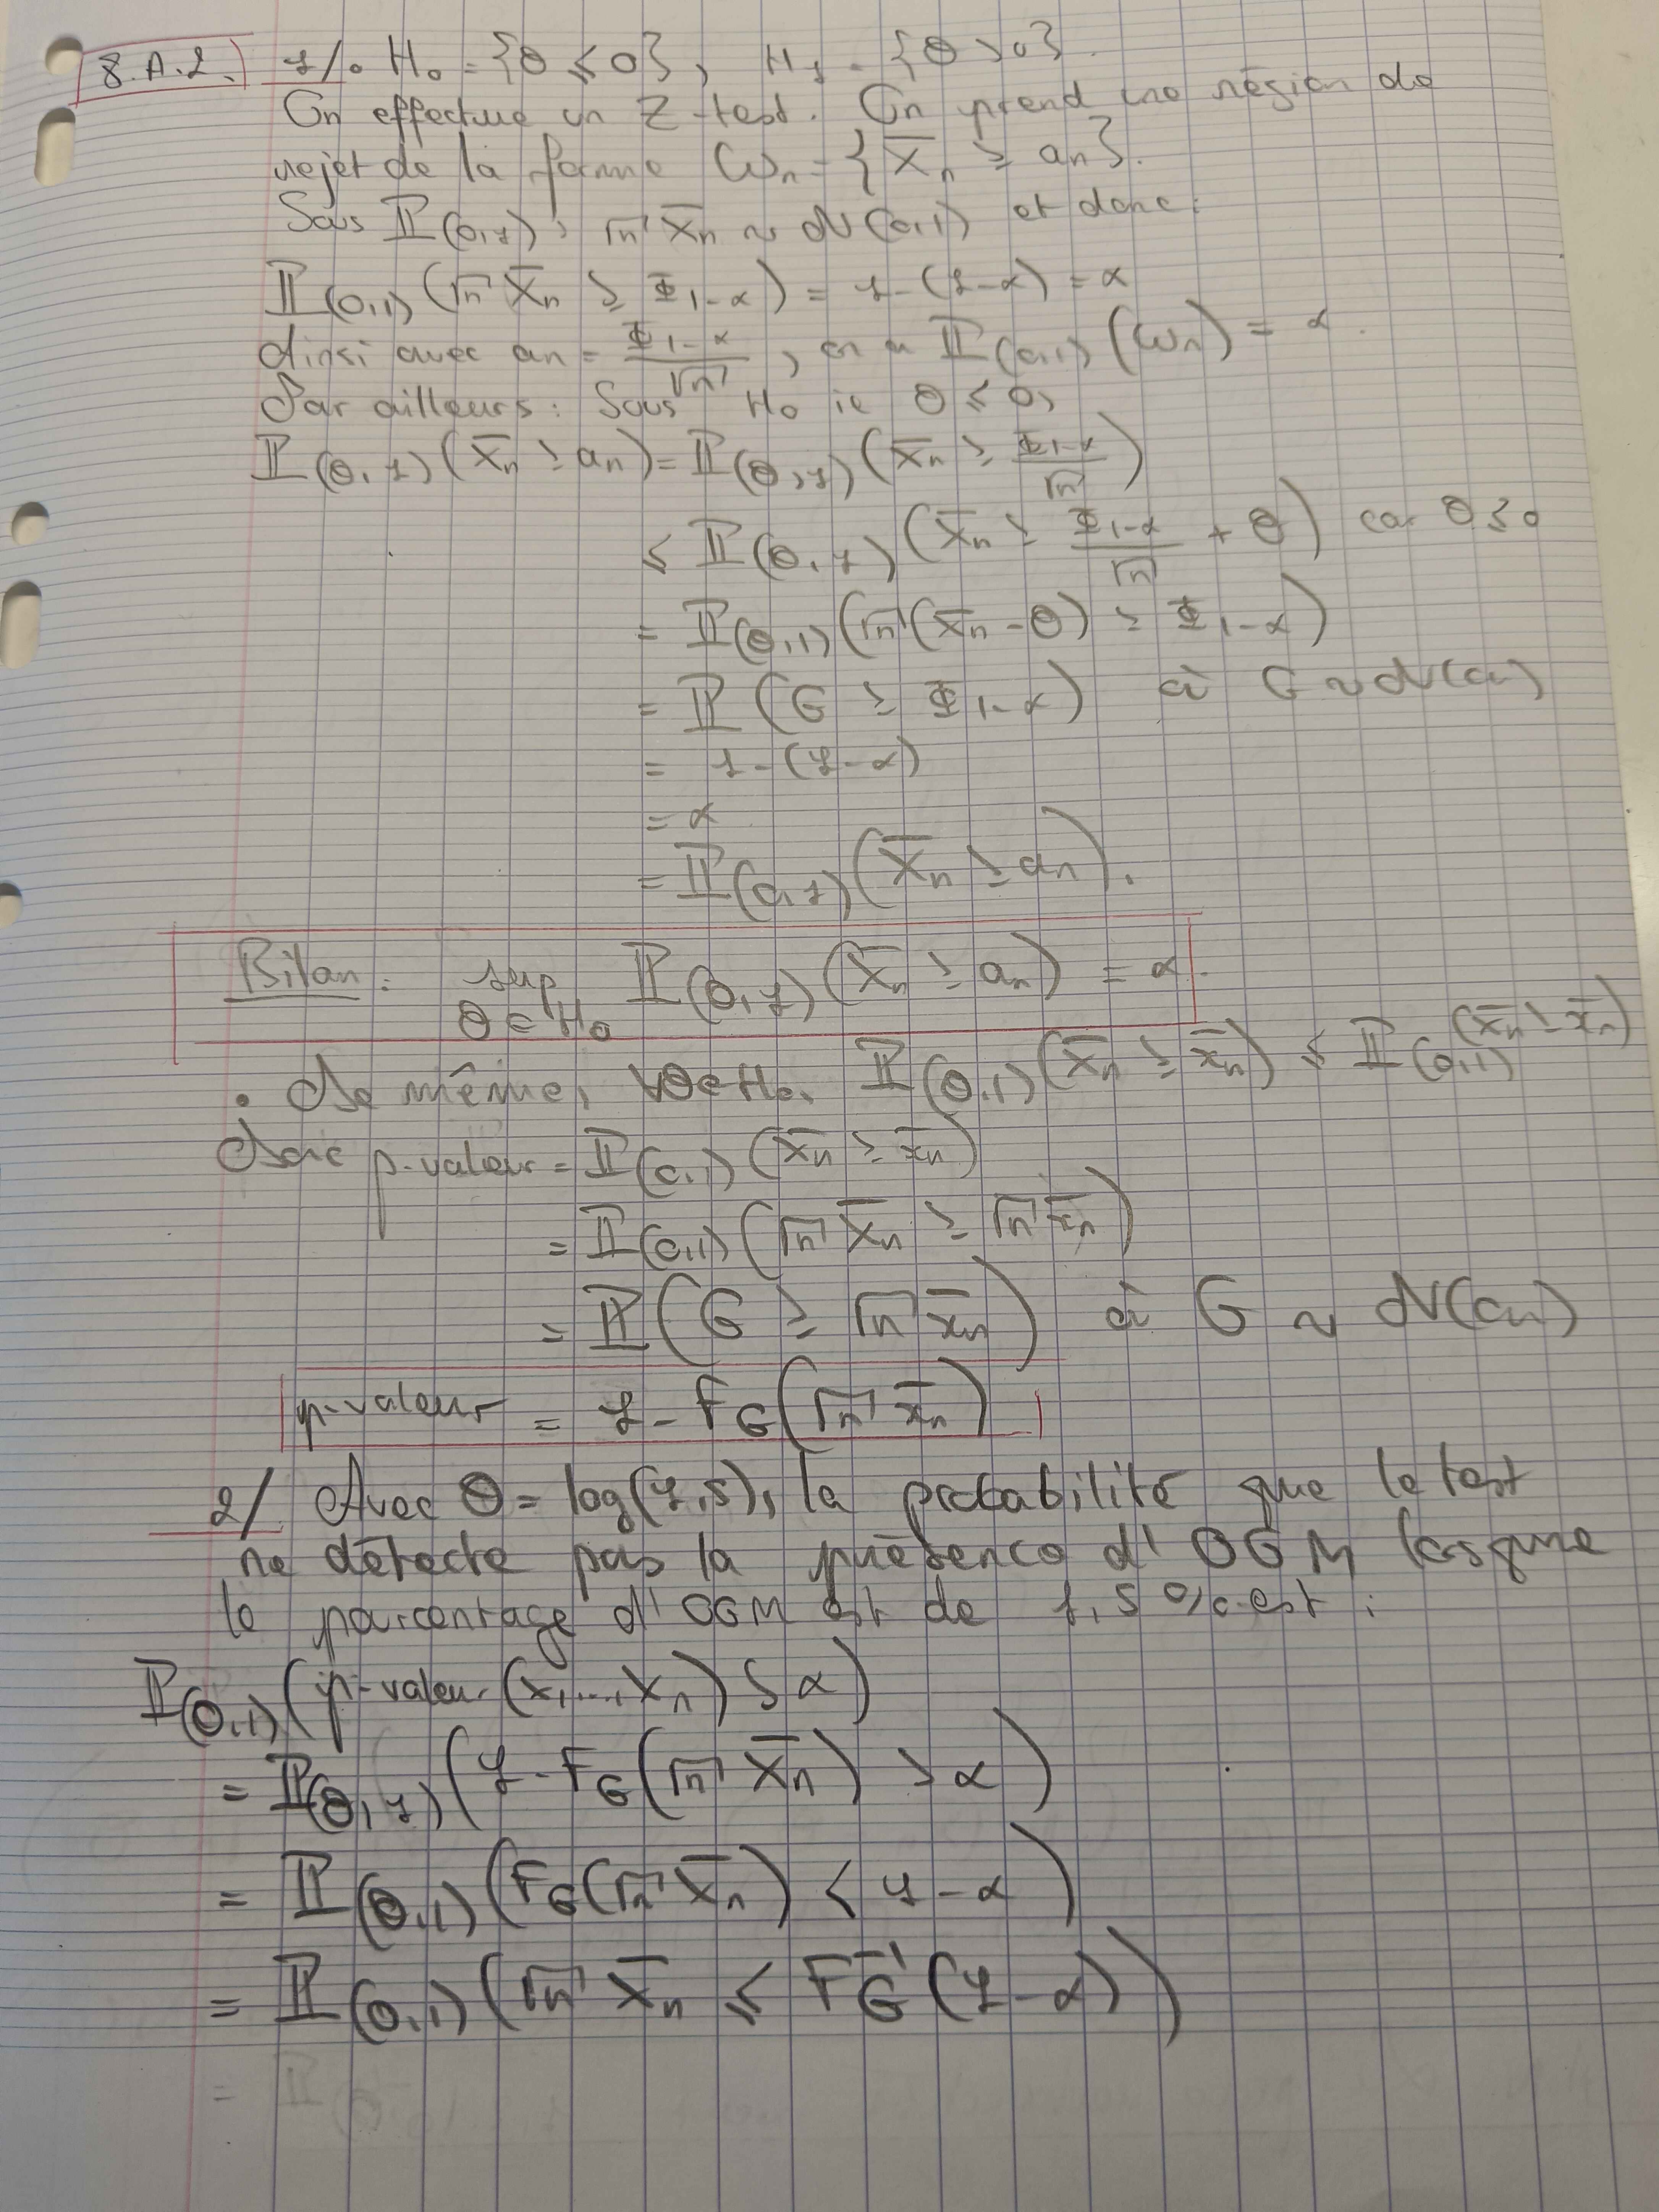 8.A.2. 1/. H₀ = {θ ≤ 0}, H₁ = {θ > 0}.
On effectue un Z-test. On prend une région de
rejet de la forme Wₙ = {X̄ₙ ≥ aₙ}.
Sous ℙ(0,1), √n X̄ₙ ~ N(0,1) et donc:
ℙ(0,1)(√n X̄ₙ ≥ Φ₁₋α) = 1-(1-α) = α
Ainsi avec aₙ = Φ₁₋α/√n, on a ℙ(0,1)(Wₙ) = α.
Par ailleurs: Sous H₀ ie θ ≤ 0,
ℙ(θ,1)(X̄ₙ ≥ aₙ) = ℙ(θ,1)(X̄ₙ ≥ Φ₁₋α/√n)
≤ ℙ(θ,1)(X̄ₙ ≥ Φ₁₋α/√n + θ) car θ ≤ 0
= ℙ(θ,1)(√n(X̄ₙ - θ) ≥ Φ₁₋α)
= ℙ(G ≥ Φ₁₋α) où G ~ N(0,1)
= 1-(1-α)
= α
= ℙ(0,1)(X̄ₙ ≥ aₙ).
Bilan: sup θ∈H₀ ℙ(θ,1)(X̄ₙ ≥ aₙ) = α.
• De même, ∀θ∈H₀, ℙ(θ,1)(X̄ₙ ≥ x̄ₙ) ≤ ℙ(0,1)(X̄ₙ ≥ x̄ₙ)
Donc p-valeur = ℙ(0,1)(X̄ₙ ≥ x̄ₙ)
= ℙ(0,1)(√n X̄ₙ ≥ √n x̄ₙ)
= ℙ(G ≥ √n x̄ₙ) où G ~ N(0,1)
p-valeur = 1 - F_G(√n x̄ₙ)
2/ Avec θ = log(1,5), la probabilité que le test
ne détecte pas la présence d'OGM lorsque
le pourcentage d'OGM est de 1,5% est :
ℙ(θ,1)(p-valeur(X₁,...,Xₙ) > α)
= ℙ(θ,1)(1 - F_G(√n X̄ₙ) > α)
= ℙ(θ,1)(F_G(√n X̄ₙ) < 1-α)
= ℙ(θ,1)(√n X̄ₙ ≤ F_G⁻¹(1-α))